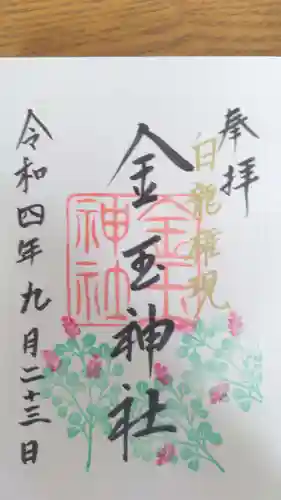 奉拝
白龍権現
金玉神社
金玉神社
令和四年九月二十三日